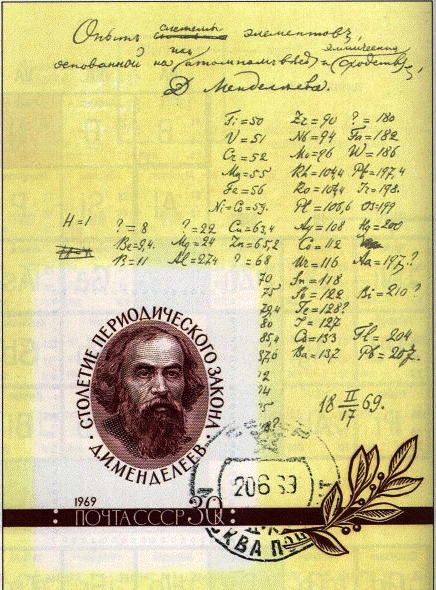 Опытъ системы элементовъ,
основанной на ихъ атомномъ вѣсѣ и химическомъ сродствѣ,
Д Менделѣева.
Ti=50 Zr=90 ?=180
V=51 Nb=94 Ta=182
Cr=52 Mo=96 W=186
Mn=55 Rh=104,4 Pt=197,4
Fe=56 Ro=104,4 Ir=198.
Ni=Co=59. Pl=106,6 Os=199
H=1 ?=8 ?=22 Cu=63,4 Ag=108 Hg=200
Be=9,4. Mg=24 Zn=65,2 Cd=112
B=11 Al=27,4 ?=68 Ur=116 Au=197?
70 Sn=118
75 Sb=122 Bi=210?
79,4 Te=128?
80 J=127
85,4 Cs=133 Tl=204
87,6 Ba=137 Pb=207.
18 II/17 69.
СТОЛЕТИЕ ПЕРИОДИЧЕСКОГО ЗАКОНА
Д.И.МЕНДЕЛЕЕВ
1969
ПОЧТА СССР 30
20 6 69